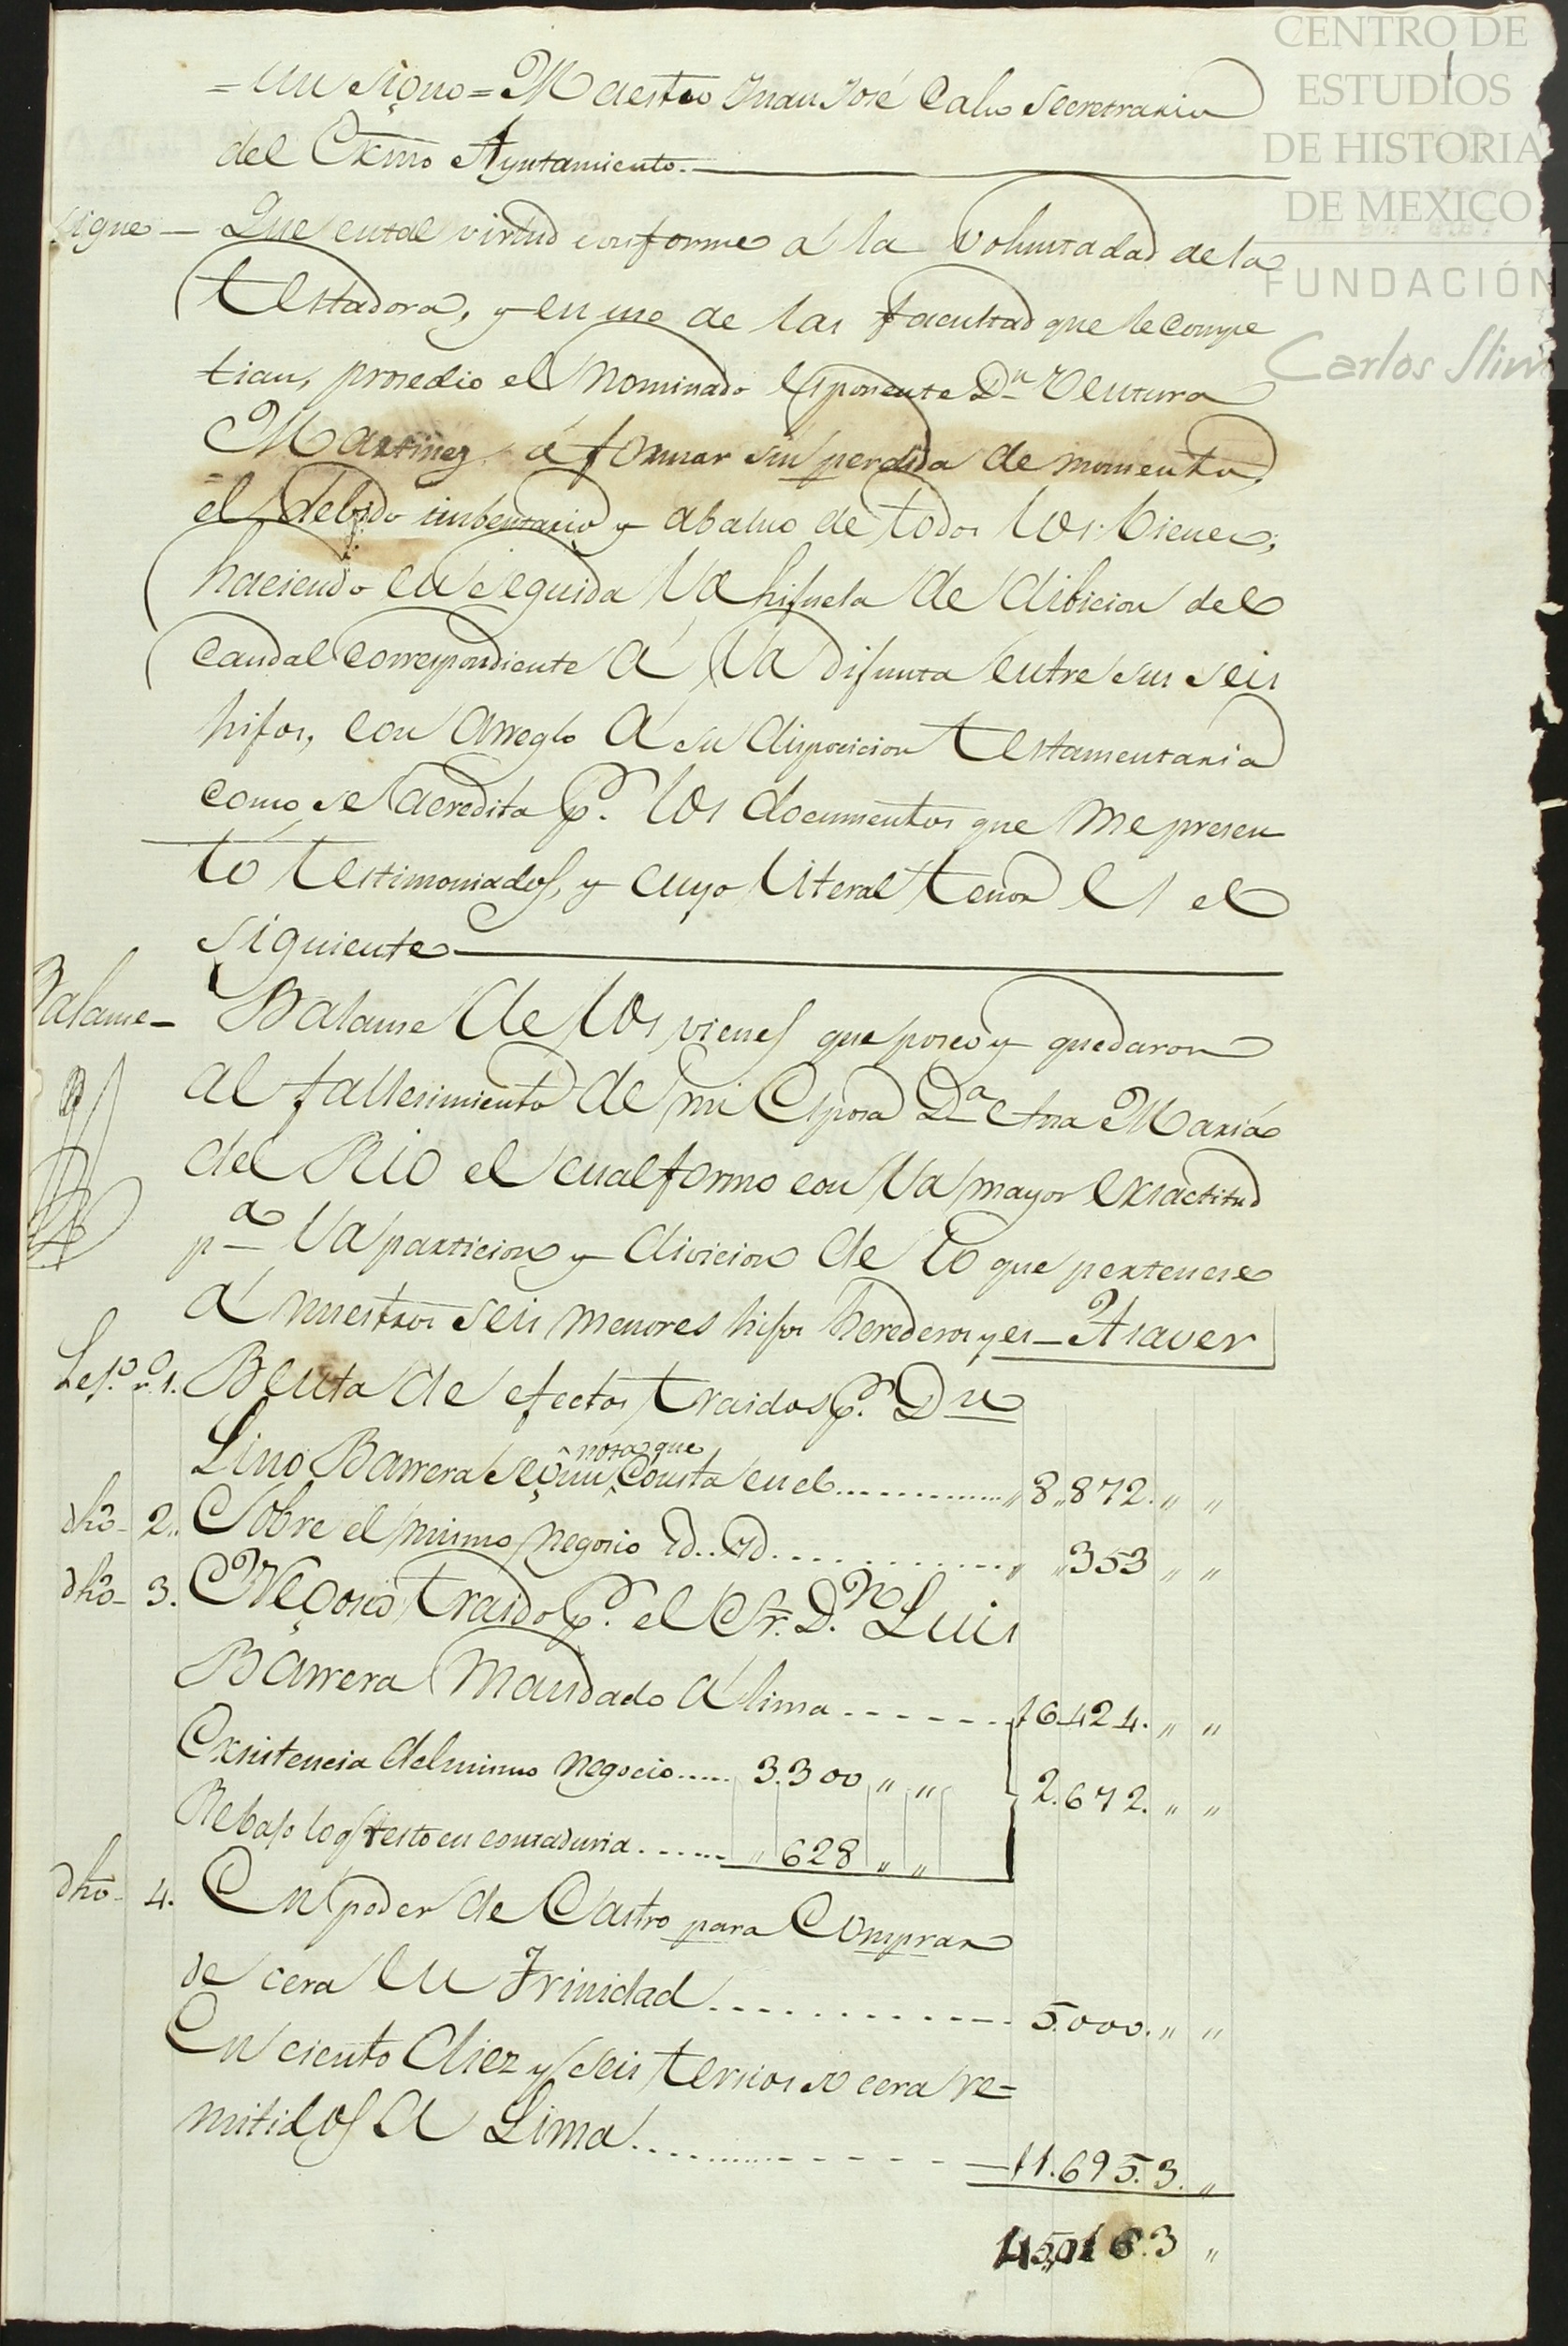 CENTRO DE
ESTUDIOS
DE HISTORIA
DE MEXICO
FUNDACIÓN
Carlos Slim
= un signo = Maestro Juan José Calvo Secretario
del Exmo Ayuntamiento.
Sigue — Que en tal virtud conforme á la voluntadad de la
testadora, y en uso de las facultad que le compe
tian, prosedio el nominado esponente Dn Ventura
Martinez á formar sin perdida de momento,
el debido imbentario y abaluo de todos los bienes,
haciendo en seguida la hijuela de dibicion del
Caudal Correspondiente á la difunta entre sus seis
hijos, con arreglo á su disposicion testamentaria
como se acredita p.r los documentos que me presen
tó testimoniados, y cuyo literal tenor es el
siguiente
Balanse — Balanse de los vienes que poseo y quedaron
al fallesimiento de mi Esposa Da Ana Maria
del Rio el cual formo con la mayor exsactitud
pa la particion y divicion de lo que pertenese
á nuestros seis menores hijos herederos y es — A saver
Lejo. no. 1. Benta de efectos traidos p.r Dn
nota que
Lino Barrera segun Consta en el ............ 8,,872. ,, ,,
dho- 2.. Sobre el mismo negosio Yd.. Yd. ............ ,, 353 ,, ,,
dho- 3. Negosio traido p.r el Sr. D.n Luis
Barrera Mandado á lima ------ 16424. ,, ,,
Exsistencia del mismo negocio ...... 3.300 ,, ,,
2.672. ,, ,,
Rebajo lo q resto en contaduria ....... ,, 628 ,, ,,
dho- 4. En poder de Castro para Comprar
de cera en Trinidad ............ 5.000. ,, ,,
En ciento diez y seis tersios de cera re=
mitidos a Lima ............ 11.695.3. ,,
45,016.3 ,,